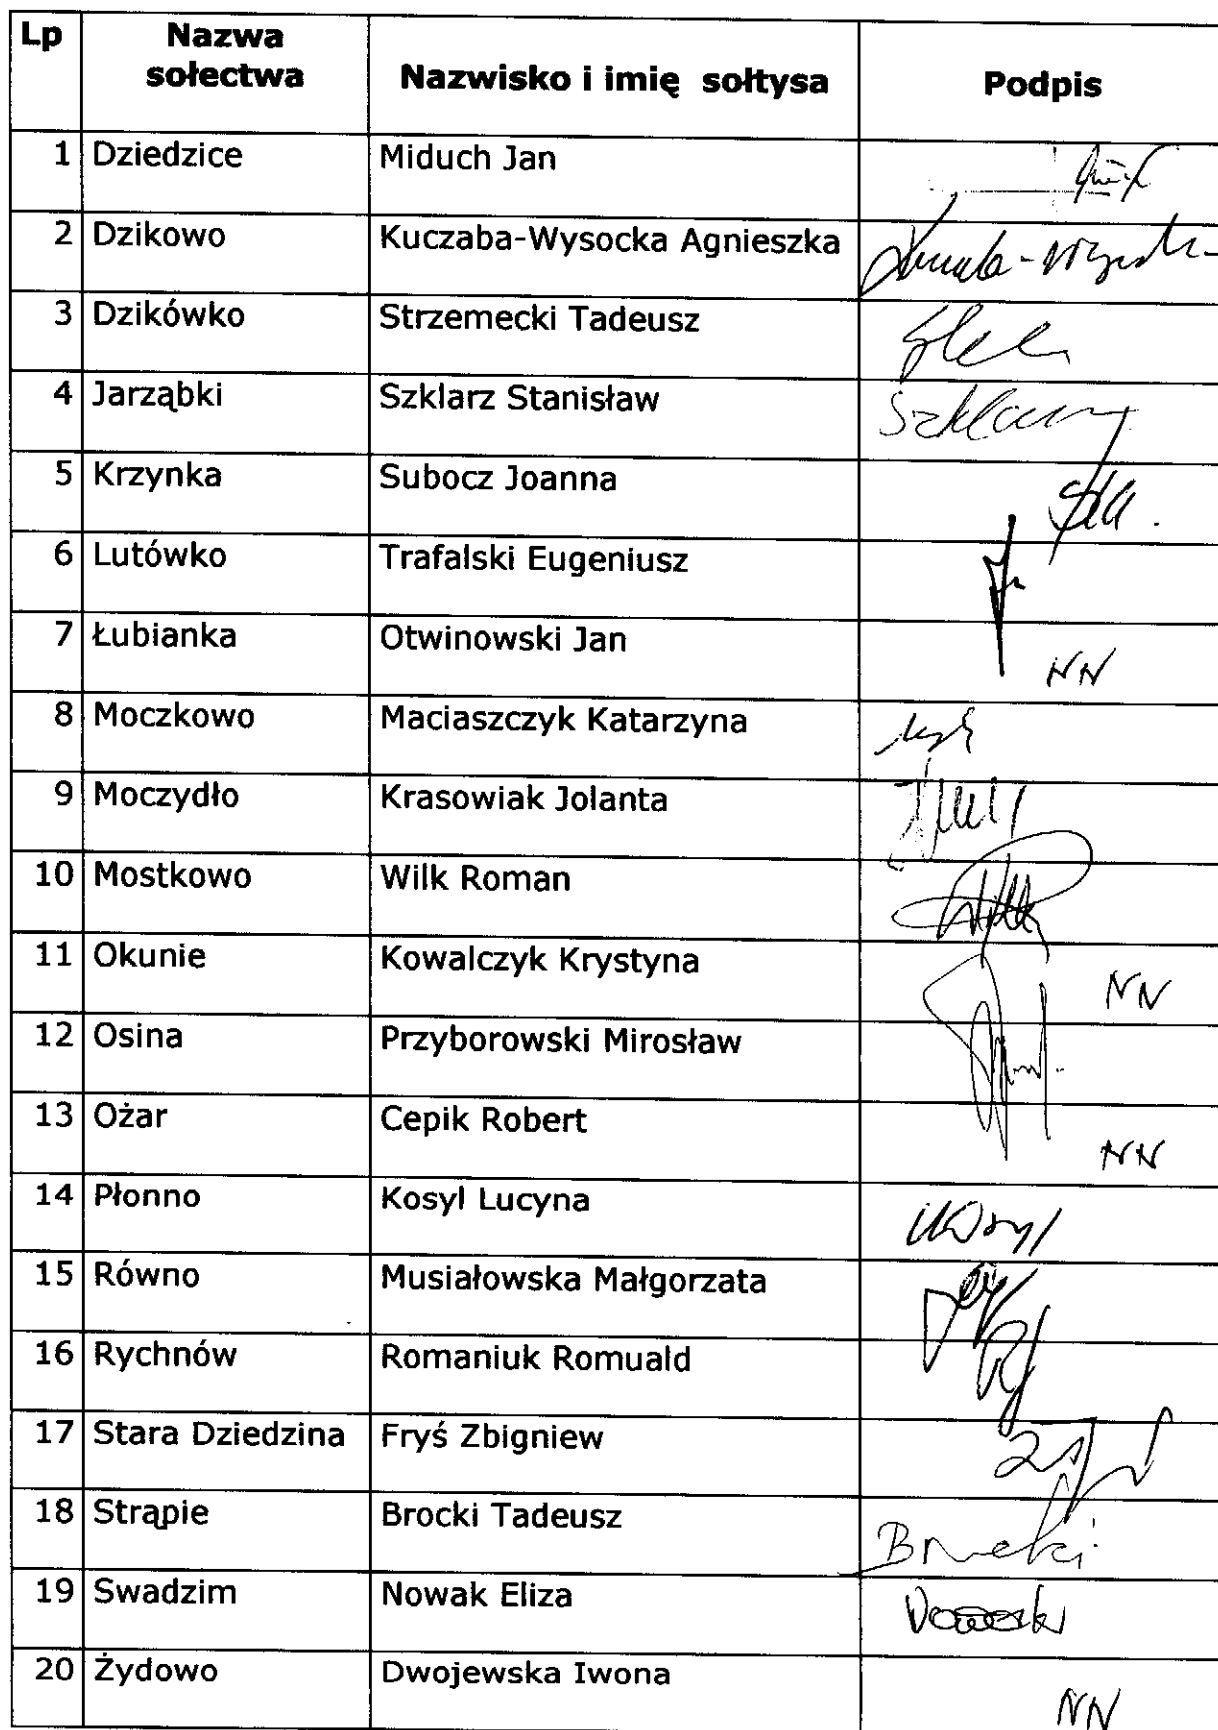 Lp Nazwa sołectwa Nazwisko i imię sołtysa Podpis
1 Dziedzice Miduch Jan
2 Dzikowo Kuczaba-Wysocka Agnieszka
3 Dzikówko Strzemecki Tadeusz
4 Jarząbki Szklarz Stanisław Szklarz
5 Krzynka Subocz Joanna
6 Lutówko Trafalski Eugeniusz
7 Łubianka Otwinowski Jan NN
8 Moczkowo Maciaszczyk Katarzyna
9 Moczydło Krasowiak Jolanta
10 Mostkowo Wilk Roman
11 Okunie Kowalczyk Krystyna NN
12 Osina Przyborowski Mirosław
13 Ożar Cepik Robert NN
14 Płonno Kosyl Lucyna
15 Równo Musiałowska Małgorzata
16 Rychnów Romaniuk Romuald
17 Stara Dziedzina Fryś Zbigniew
18 Strąpie Brocki Tadeusz Brocki
19 Swadzim Nowak Eliza
20 Żydowo Dwojewska Iwona NN